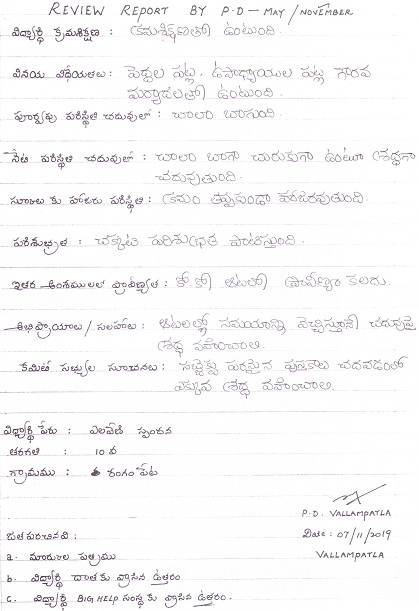 REVIEW REPORT BY P.D - MAY / NOVEMBER
విద్యార్థి క్రమశిక్షణ : క్రమశిక్షణతో ఉంటుంది.
వినయ విధేయతలు : పెద్దల పట్ల, ఉపాధ్యాయుల పట్ల గౌరవ
మర్యాదలతో ఉంటుంది.
పూర్వపు పరిస్థితి చదువులో : చాలా బాగుంది.
నేటి పరిస్థితి చదువులో : చాలా బాగా చురుకుగా ఉంటూ శ్రద్ధగా
చదువుతుంది.
స్కూలు కు హాజరు పరిస్థితి : క్రమం తప్పకుండా హాజరవుతుంది.
పరిశుభ్రత : చక్కటి పరిశుభ్రత పాటిస్తుంది.
ఇతర అంశములలో ప్రావీణ్యత : కో.కో ఆటలో ప్రావీణ్యం కలదు.
అభిప్రాయాలు / సలహాలు : ఆటలల్లో సమయాన్ని వెచ్చిస్తూనే చదువుపై
శ్రద్ధ వహించాలి.
కమిటి సభ్యుల సూచనలు : సబ్జెక్టు పరమైన పుస్తకాలు చదవడంలో
ఎక్కువ శ్రద్ధ వహించాలి.
విద్యార్థి పేరు : ఎలవేణి స్పందన
తరగతి : 10 వ
గ్రామము : రంగం పేట
P.D. VALLAMPATLA
జతపరచినవి : Date: 07/11/2019
a. మార్కుల పత్రము VALLAMPATLA
b. విద్యార్థి దాతకు వ్రాసిన ఉత్తరం
c. విద్యార్థి BIG HELP సంస్థ కు వ్రాసిన ఉత్తరం.